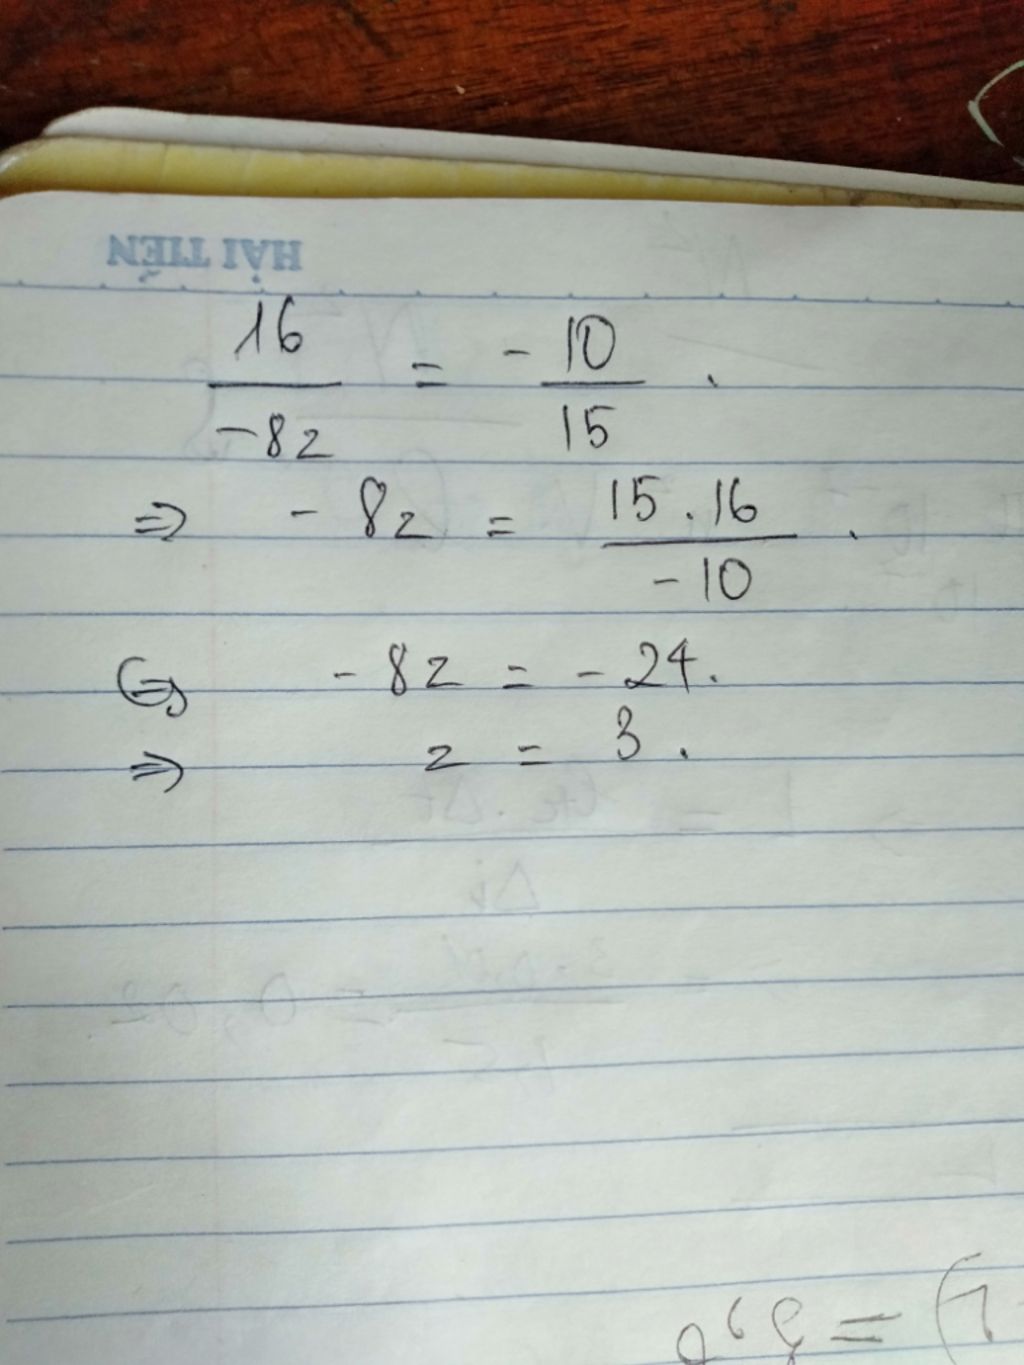 HẢI TIẾN
16/-8z = - 10/15 .
⇒ - 8z = 15.16/-10 .
⇔ - 8z = - 24.
⇒ z = 3 .